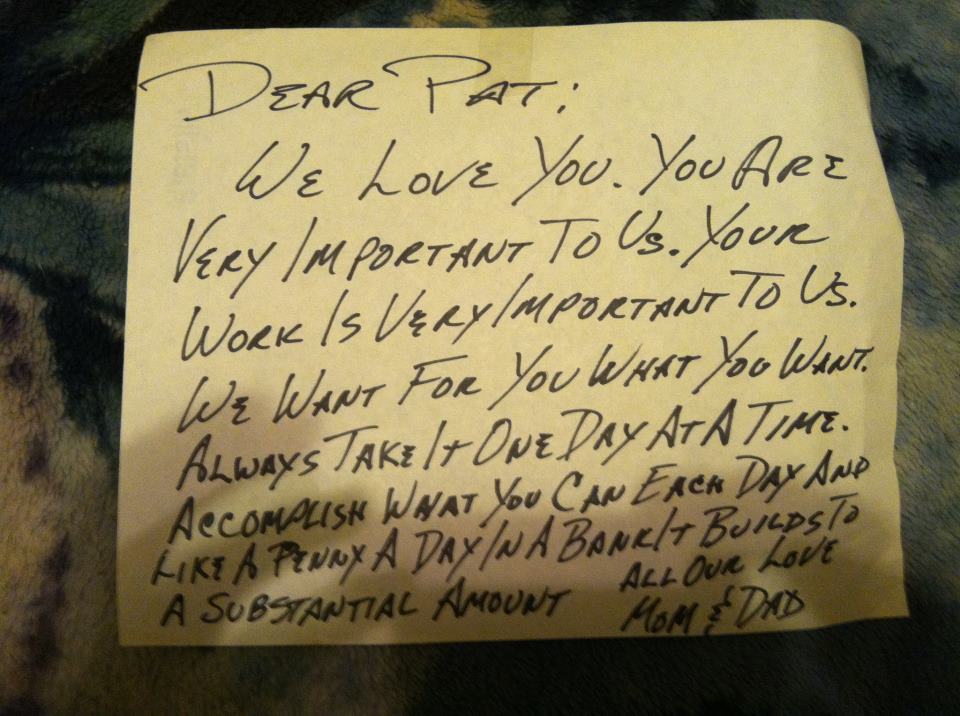 Dear Pat:
We Love You. You Are
Very Important To Us. Your
Work Is Very Important To Us.
We Want For You What You Want.
Always Take It One Day At A Time.
Accomplish What You Can Each Day And
Like A Penny A Day In A Bank It Builds To
A Substantial Amount
All Our Love
Mom & Dad